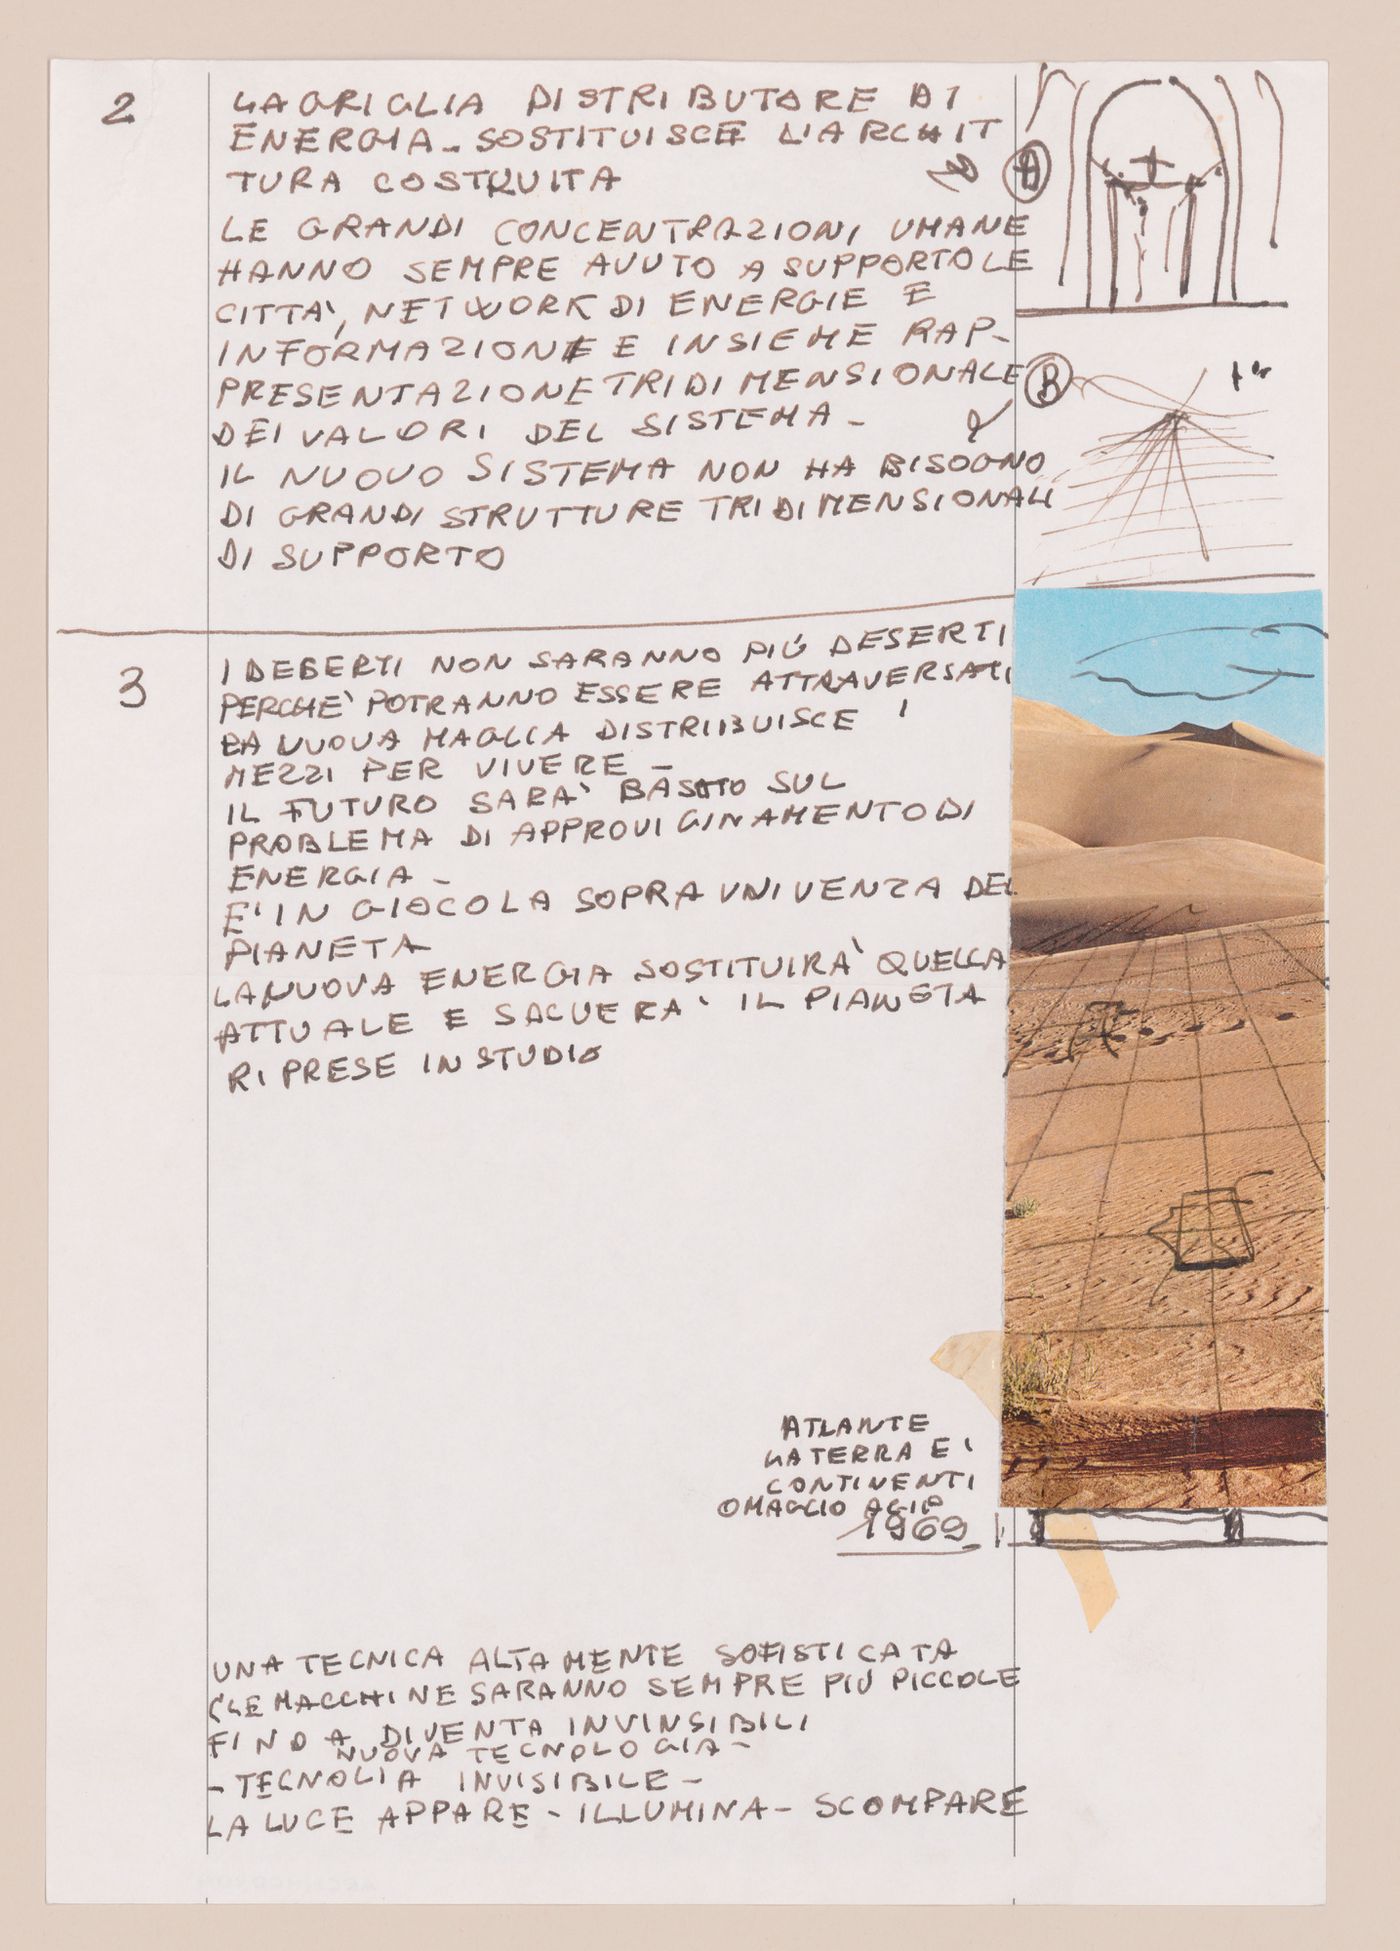 2
LA GRIGLIA DISTRIBUTORE DI
ENERGIA - SOSTITUISCE L'ARCHIT
TURA COSTRUITA
A
LE GRANDI CONCENTRAZIONI UMANE
HANNO SEMPRE AVUTO A SUPPORTO LE
CITTA', NETWORK DI ENERGIE E
INFORMAZIONE E INSIEME RAP-
PRESENTAZIONE TRIDIMENSIONALE
B
DEI VALORI DEL SISTEMA -
IL NUOVO SISTEMA NON HA BISOGNO
DI GRANDI STRUTTURE TRIDIMENSIONALI
DI SUPPORTO
3
I DESERTI NON SARANNO PIÚ DESERTI
PERCHE' POTRANNO ESSERE ATTRAVERSATI
LA NUOVA MAGLIA DISTRIBUISCE I
MEZZI PER VIVERE -
IL FUTURO SARA' BASATO SUL
PROBLEMA DI APPROVIGINAMENTO DI
ENERGIA -
E' IN GIOCO LA SOPRAVNIVENZA DEL
PIANETA
LA NUOVA ENERGIA SOSTITUIRA' QUELLA
ATTUALE E SALVERA' IL PIANETA
RIPRESE IN STUDIO
ATLANTE
LA TERRA E I
CONTINENTI
OMAGGIO AGIP
1969
UNA TECNICA ALTAMENTE SOFISTICATA
(LE MACCHINE SARANNO SEMPRE PIÙ PICCOLE
FINO A DIVENTA INVINSIBILI
NUOVA TECNOLOGIA -
- TECNOLIA INVISIBILE -
LA LUCE APPARE - ILLUMINA - SCOMPARE